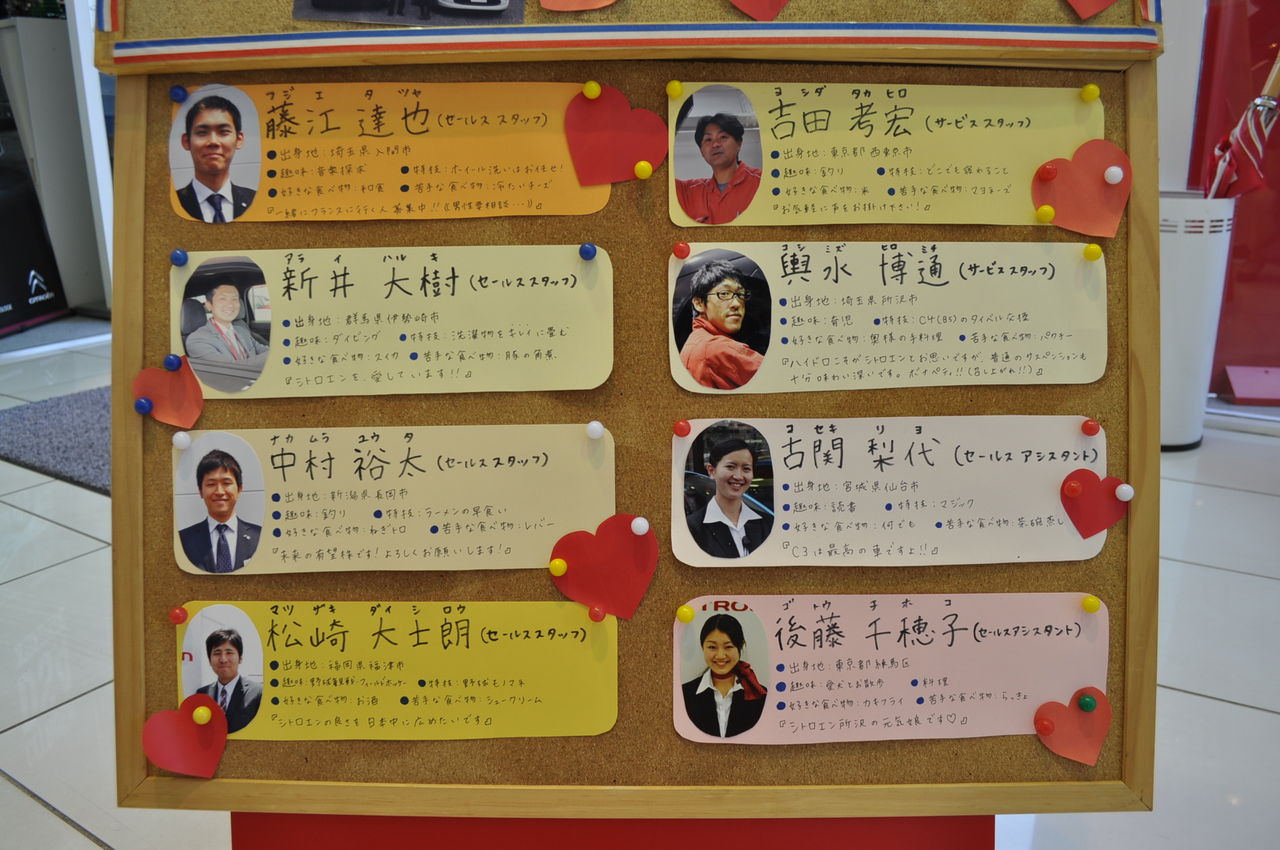 フジ エ タツ ヤ
藤江 達也 (セールススタッフ)
●出身地:埼玉県入間市
●趣味:音楽探求 ●特技:ホイール洗いはお任せ!
●好きな食べ物:和食 ●苦手な食べ物:冷たいチーズ
『一緒にフランスに行く人募集中!!(男性要相談…)』
アラ イ ハル キ
新井 大樹 (セールススタッフ)
●出身地:群馬県伊勢崎市
●趣味:ダイビング ●特技:洗濯物をキレイに畳む
●好きな食べ物:スイカ ●苦手な食べ物:豚の角煮
『シトロエンを、愛しています!!』
ナカ ムラ ユウ タ
中村 裕太 (セールススタッフ)
●出身地:新潟県長岡市
●趣味:釣り ●特技:ラーメンの早食い
●好きな食べ物:ねぎトロ ●苦手な食べ物:レバー
『未来の有望株です!よろしくお願いします!』
マツ ザキ ダイ シ ロウ
松崎 大士朗 (セールススタッフ)
●出身地:福岡県福津市
●趣味:野球観戦・フィールドホッケー ●特技:野球モノマネ
●好きな食べ物:お酒 ●苦手な食べ物:シュークリーム
『シトロエンの良さを日本中に広めたいです』
ヨシ ダ タカ ヒロ
吉田 考宏 (サービススタッフ)
●出身地:東京都西東京市
●趣味:釣り ●特技:どこでも寝れること
●好きな食べ物:米 ●苦手な食べ物:マヨネーズ
『お気軽に声をお掛け下さい!』
コシ ミズ ヒロ ミチ
輿水 博通 (サービススタッフ)
●出身地:埼玉県所沢市
●趣味:育児 ●特技:C4(B5)のタイベル交換
●好きな食べ物:奥様の手料理 ●苦手な食べ物:パクチー
『ハイドロこそがシトロエンとお思いですが、普通のサスペンションも
十分味わい深いです。ボナペティ!!(召し上がれ!!)』
コ セキ リ ヨ
古関 梨代 (セールスアシスタント)
●出身地:宮城県仙台市
●趣味:読書 ●特技:マジック
●好きな食べ物:何でも ●苦手な食べ物:茶碗蒸し
『C3は最高の車ですよ!!』
ゴ トウ チ ホ コ
後藤 千穂子 (セールスアシスタント)
●出身地:東京都練馬区
●趣味:愛犬とお散歩 ●料理
●好きな食べ物:カキフライ ●苦手な食べ物:らっきょ
『シトロエン所沢の元気娘です♡』
CITROËN